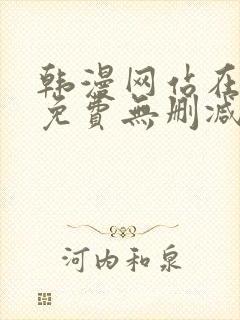 韩漫网站在
免費無删减
河内和泉